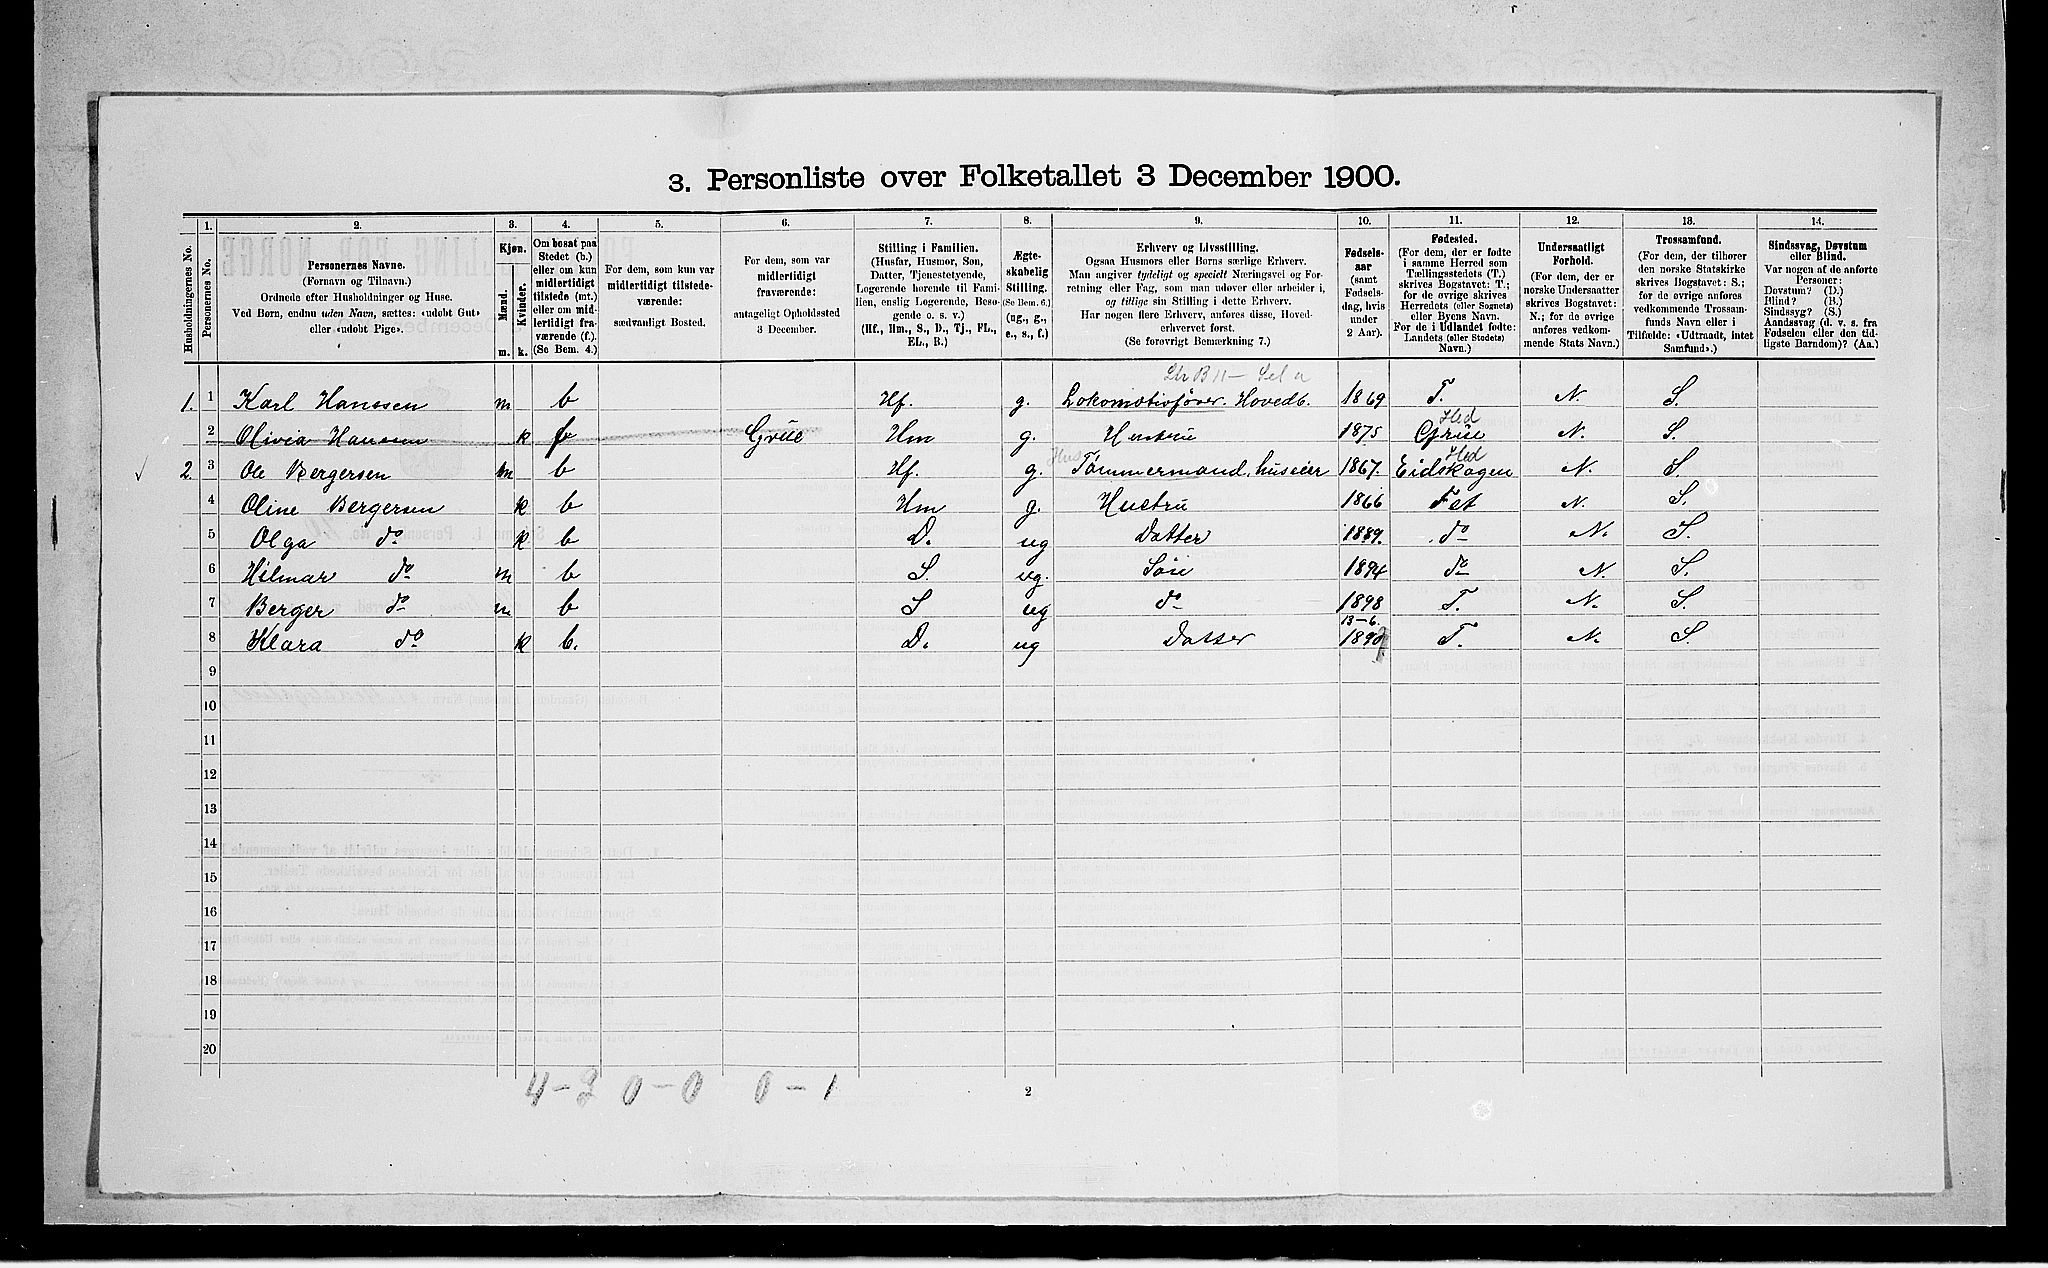 3. Personliste over Folketallet 3 December 1900.
1. 2. 3. 4. 5. 6. 7. 8. 9. 10. 11. 12. 13. 14.
Husholdningernes No.
Personernes No.
Personernes Navne.
(Fornavn og Tilnavn.)
Ordnede efter Husholdninger og Huse.
Ved Børn, endnu uden Navn, sættes: «udobt Gut»
eller «udobt Pige».
Kjøn.
Mænd.
Kvinder.
m. k.
Om bosat paa
Stedet (b.)
eller om kun
midlertidigt
tilstede (mt.)
eller om mid-
lertidigt fra-
værende (f.).
(Se Bem. 4.)
For dem, som kun var
midlertidigt tilstede-
værende:
sædvanligt Bosted.
For dem, som var
midlertidigt
fraværende:
antageligt Opholdssted
3 December.
Stilling i Familien.
(Husfar, Husmor, Søn,
Datter, Tjenestetyende,
Logerende hørende til Fami-
lien, enslig Logerende, Besø-
gende o. s. v.)
(Hf., Hm., S., D., Tj., FL.,
EL., B.)
Ægte-
skabelig
Stilling.
(Se Bem. 6.)
(ug., g.,
e., s., f.)
Erhverv og Livsstilling.
Ogsaa Husmors eller Børns særlige Erhverv.
Man angiver tydeligt og specielt Næringsvei og For-
retning eller Fag, som man udøver eller arbeider i,
og tillige sin Stilling i dette Erhverv.
Har nogen flere Erhverv, anføres disse, Hoved-
erhvervet først.
(Se forøvrigt Bemerkning 7.)
Fødsels-
aar
(samt
Fødsels-
dag, hvis
under
2 Aar).
Fødested.
(For dem, der er fødte
i samme Herred som
Tællingsstedets (T.)
skrives Bogstavet: T.;
for de øvrige skrives
Herredets (eller Sognets)
eller Byens Navn.
For de i Udlandet fødte:
Landets (eller Stedets)
Navn.)
Undersaatligt
Forhold.
(For dem, der er
norske Undersaatter
skrives Bogstavet:
N.; for de øvrige
anføres vedkom-
mende Stats Navn.)
Trossamfund.
(For dem, der tilhører
den norske Statskirke
skrives Bogstavet: S.;
for de øvrige anføres
vedkommende Trossam-
funds Navn eller i
Tilfælde: «Udtraadt, intet
Samfund».)
Sindssvag, Døvstum
eller Blind.
Var nogen af de anførte
Personer:
Døvstum? (D.)
Blind? (B.)
Sindssyg? (S.)
Aandssvag (d. v. s. fra
Fødselen eller den tid-
ligste Barndom)? (Aa.)
1. 1 Karl Hanssen m b Hf. g. Lokomotivfører. Hovedb. 1869 T. N. S.
Hed
2 Olivia Hansen k f Grue Hm g. Hustru 1875 Grue N. S.
Hed
✓ 2. 3 Ole Bergersen m b Hf. g. Tømmermand, huseier 1867. Eidskogen N. S.
4 Oline Bergersen k b Hm g. Hustru 1866 Fet N. S.
5 Olga do k b D. ug Datter 1889. do N. S.
6 Hilmar do m b S. ug. Søn 1894 do N. S.
7 Berger do m b S ug do 1898 T. N. S.
13-6.
8 Klara do k b. D. ug Datter 1890 T. N. S.
9
10
11
12
13
14
15
16
17
18
19
20
4-2 0-0 0-1
2